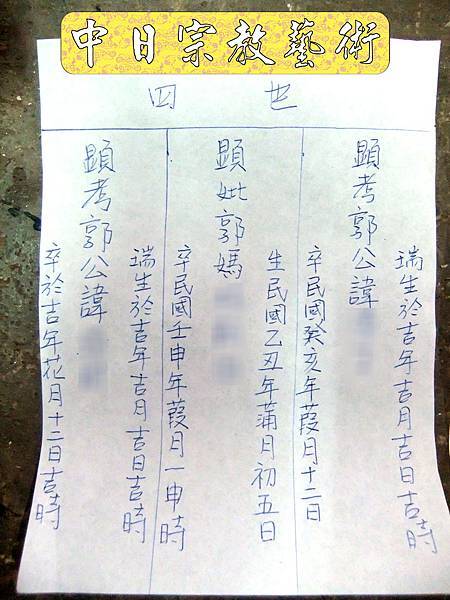 中日宗教藝術
四世
瑞生於吉年吉月吉日吉時
顯考郭公諱
卒民國癸亥年葭月十二日
生民國乙丑年蒲月初五日
顯妣郭媽
卒民國壬申年葭月一申時
瑞生於吉年吉月吉日吉時
顯考郭公諱
卒於吉年花月十二日吉時